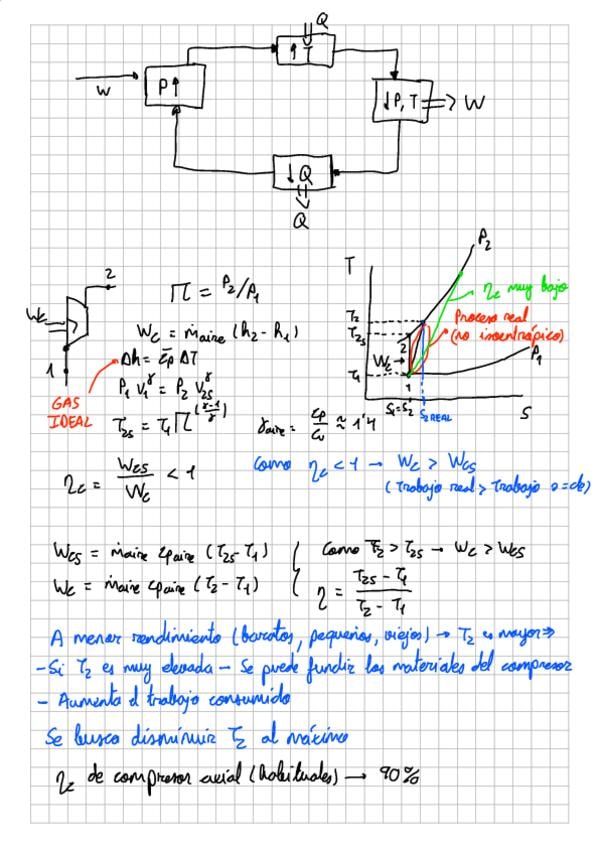 Q
P↑
↑T
↓P,T
W
W
↓Q
Q
2
Wc
1
GAS
IDEAL
Π = P₂/P₁
Wc = ṁaire (h₂ - h₁)
Δh = c̄p ΔT
P₁ V₁^γ = P₂ V₂s^γ
T₂s = T₁ Π^((γ-1)/γ)
γaire = cp/cv ≈ 1'4
T
P₂
ηc muy bajo
Proceso real
(no isoentrópico)
P₁
T₂
T₂s
T₁
2
Wc
1
S₁=S₂
S₂ REAL
S
ηc = Wcs/Wc < 1
Como ηc < 1 → Wc > Wcs
(Trabajo real > Trabajo s=cte)
Wcs = ṁaire cpaire (T₂s - T₁)
Wc = ṁaire cpaire (T₂ - T₁)
Como T₂ > T₂s → Wc > Wcs
η = (T₂s - T₁)/(T₂ - T₁)
A menor rendimiento (baratos, pequeños, viejos) → T₂ es mayor ⇒
- Si T₂ es muy elevada - Se puede fundir los materiales del compresor
- Aumenta el trabajo consumido
Se busca disminuir T₂ al máximo
ηc de compresor axial (habituales) → 90%